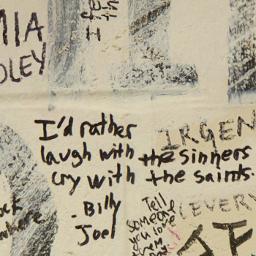 MIA
OLEY
I'd rather
laugh with the sinners
cry with the saints.
- Billy
Joel
IRGEN
(EVERY
Tell
someone
you love
them